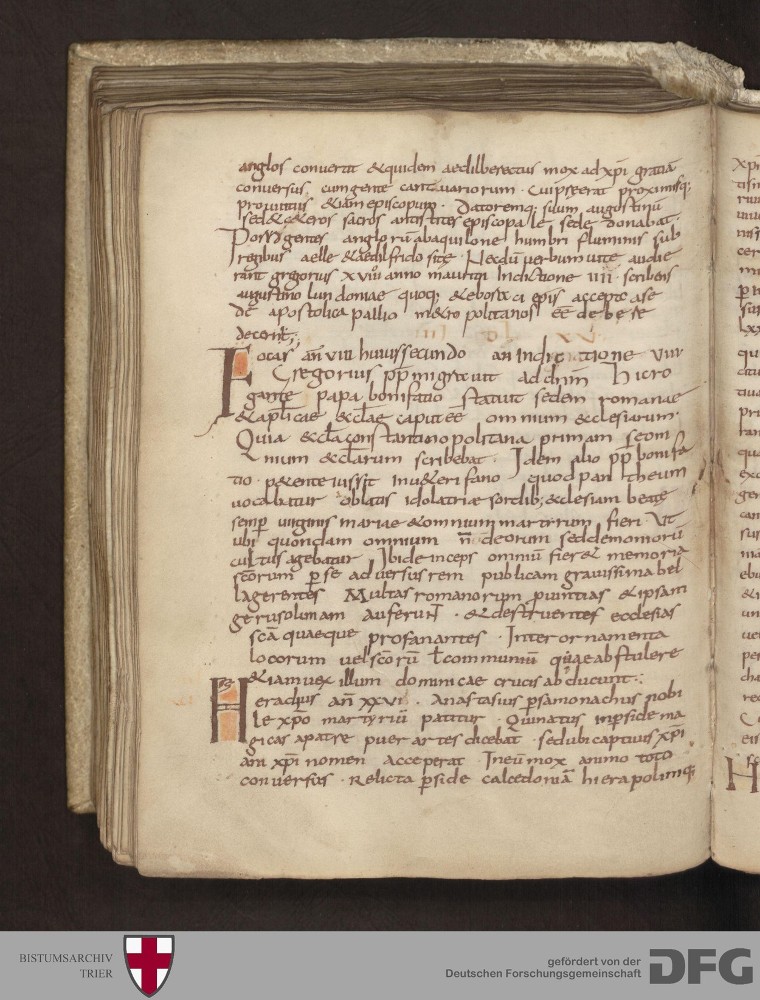 anglos convertit & quidem aedilberectus mox ad xp̄i gratiā
conversus, cum gente cantuariorum. Cui preerat proximisq;
provintiis & iam episcopum. Datoremq; suum augustinū
sed & c&eros sacros antistites episcopale sede donabat.
Porro gentes anglorū ab aquilone humbri fluminis sub
regibus aelle & aedilfrido site. Necdū verbum vite audie
rant gregorius xviii anno mauritii Indictione iiii. scribens
augustino lundoniae quoq; & eboraci ep̄is accepto a se
de apostolica pallio m&ropolitanos eē debere
decernit;
Focas an̄ viii huius secundo an indictione viii
Gregorius pp̄ migravit ad dn̄m hicro
gante papa bonifatio statuit sedem romanae
& aplicae ecclae caput eē omnium ecclesiarum.
Quia eccla constantinopolitana primam se om
nium ecclarum scribebat. Idem alio pp̄ bonifa
tio p&ente iussit in v&eri fano quod pantheum
vocabatur oblatis idolatriae sordib; ecclesiam beate
semp virginis mariae & omnium martirum fieri. Ut
ubi quondam omnium n̄ deorum sed demoniorū
cultus agebatur Ibi deinceps omniū fier& memoria
sc̄orum perse adversus rem publicam gravissima bel
la gerentes Multas romanorum pvintias & ipsam
gerusolimam auferunt. & destruentes ecclesias
sc̄a quaeque profanantes. Inter ornamenta
locorum vel sc̄orū ł communiū quae abstulere
& iam vexillum dominicae crucis abducunt:
Heraclius an̄ xxvi. Anastasius psa monachus nobi
le xp̄o martyriū patitur. Qui natus in pside ma
gicas a patre puer artes dicebat. sed ubi captivis xp̄i
ani xp̄i nomen acceperat. In eū mox animo toto
conversus. Relicta pside calcedoniā hierapolimq;
BISTUMSARCHIV
TRIER
gefördert von der
Deutschen Forschungsgemeinschaft
DFG